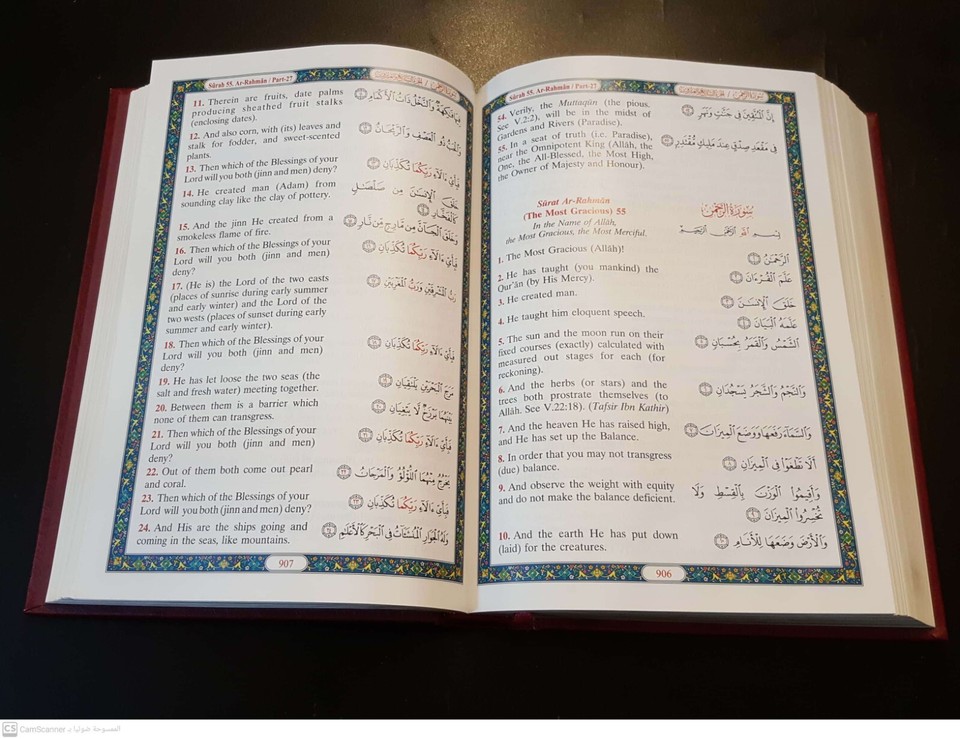 Sûrah 55. Ar-Rahmân / Part-27
54. Verily, the Muttaqûn (the pious.
See V.2:2), will be in the midst of
Gardens and Rivers (Paradise).
55. In a seat of truth (i.e. Paradise),
near the Omnipotent King (Allâh, the
One, the All-Blessed, the Most High,
the Owner of Majesty and Honour).
Sûrat Ar-Rahmân
(The Most Gracious) 55
In the Name of Allâh,
the Most Gracious, the Most Merciful.
1. The Most Gracious (Allâh)!
2. He has taught (you mankind) the
Qur'ân (by His Mercy).
3. He created man.
4. He taught him eloquent speech.
5. The sun and the moon run on their
fixed courses (exactly) calculated with
measured out stages for each (for
reckoning).
6. And the herbs (or stars) and the
trees both prostrate themselves (to
Allâh. See V.22:18). (Tafsir Ibn Kathir)
7. And the heaven He has raised high,
and He has set up the Balance.
8. In order that you may not transgress
(due) balance.
9. And observe the weight with equity
and do not make the balance deficient.
10. And the earth He has put down
(laid) for the creatures.
إِنَّ ٱلْمُتَّقِينَ فِى جَنَّٰتٍ وَنَهَرٍ ٥٤
فِى مَقْعَدِ صِدْقٍ عِندَ مَلِيكٍ مُّقْتَدِرٍ ٥٥
سُورَةُ الرَّحْمٰن
بِسْمِ ٱللَّهِ ٱلرَّحْمَٰنِ ٱلرَّحِيمِ
ٱلرَّحْمَٰنُ ١
عَلَّمَ ٱلْقُرْءَانَ ٢
خَلَقَ ٱلْإِنسَٰنَ ٣
عَلَّمَهُ ٱلْبَيَانَ ٤
ٱلشَّمْسُ وَٱلْقَمَرُ بِحُسْبَانٍ ٥
وَٱلنَّجْمُ وَٱلشَّجَرُ يَسْجُدَانِ ٦
وَٱلسَّمَآءَ رَفَعَهَا وَوَضَعَ ٱلْمِيزَانَ ٧
أَلَّا تَطْغَوْا۟ فِى ٱلْمِيزَانِ ٨
وَأَقِيمُوا۟ ٱلْوَزْنَ بِٱلْقِسْطِ وَلَا
تُخْسِرُوا۟ ٱلْمِيزَانَ ٩
وَٱلْأَرْضَ وَضَعَهَا لِلْأَنَامِ ١٠
906
Sûrah 55. Ar-Rahmân / Part-27
11. Therein are fruits, date palms
producing sheathed fruit stalks
(enclosing dates).
12. And also corn, with (its) leaves and
stalk for fodder, and sweet-scented
plants.
13. Then which of the Blessings of your
Lord will you both (jinn and men) deny?
14. He created man (Adam) from
sounding clay like the clay of pottery.
15. And the jinn He created from a
smokeless flame of fire.
16. Then which of the Blessings of your
Lord will you both (jinn and men)
deny?
17. (He is) the Lord of the two easts
(places of sunrise during early summer
and early winter) and the Lord of the
two wests (places of sunset during early
summer and early winter).
18. Then which of the Blessings of your
Lord will you both (jinn and men)
deny?
19. He has let loose the two seas (the
salt and fresh water) meeting together.
20. Between them is a barrier which
none of them can transgress.
21. Then which of the Blessings of your
Lord will you both (jinn and men)
deny?
22. Out of them both come out pearl
and coral.
23. Then which of the Blessings of your
Lord will you both (jinn and men) deny?
24. And His are the ships going and
coming in the seas, like mountains.
فِيهَا فَٰكِهَةٌ وَٱلنَّخْلُ ذَاتُ ٱلْأَكْمَامِ ١١
وَٱلْحَبُّ ذُو ٱلْعَصْفِ وَٱلرَّيْحَانُ ١٢
فَبِأَىِّ ءَالَآءِ رَبِّكُمَا تُكَذِّبَانِ ١٣
خَلَقَ ٱلْإِنسَٰنَ مِن صَلْصَٰلٍ
كَٱلْفَخَّارِ ١٤
وَخَلَقَ ٱلْجَآنَّ مِن مَّارِجٍ مِّن نَّارٍ ١٥
فَبِأَىِّ ءَالَآءِ رَبِّكُمَا تُكَذِّبَانِ ١٦
رَبُّ ٱلْمَشْرِقَيْنِ وَرَبُّ ٱلْمَغْرِبَيْنِ ١٧
فَبِأَىِّ ءَالَآءِ رَبِّكُمَا تُكَذِّبَانِ ١٨
مَرَجَ ٱلْبَحْرَيْنِ يَلْتَقِيَانِ ١٩
بَيْنَهُمَا بَرْزَخٌ لَّا يَبْغِيَانِ ٢٠
فَبِأَىِّ ءَالَآءِ رَبِّكُمَا تُكَذِّبَانِ ٢١
يَخْرُجُ مِنْهُمَا ٱللُّؤْلُؤُ وَٱلْمَرْجَانُ ٢٢
فَبِأَىِّ ءَالَآءِ رَبِّكُمَا تُكَذِّبَانِ ٢٣
وَلَهُ ٱلْجَوَارِ ٱلْمُنشَـَٔاتُ فِى ٱلْبَحْرِ كَٱلْأَعْلَٰمِ ٢٤
907
CS CamScanner الممسوحة ضوئيا بـ